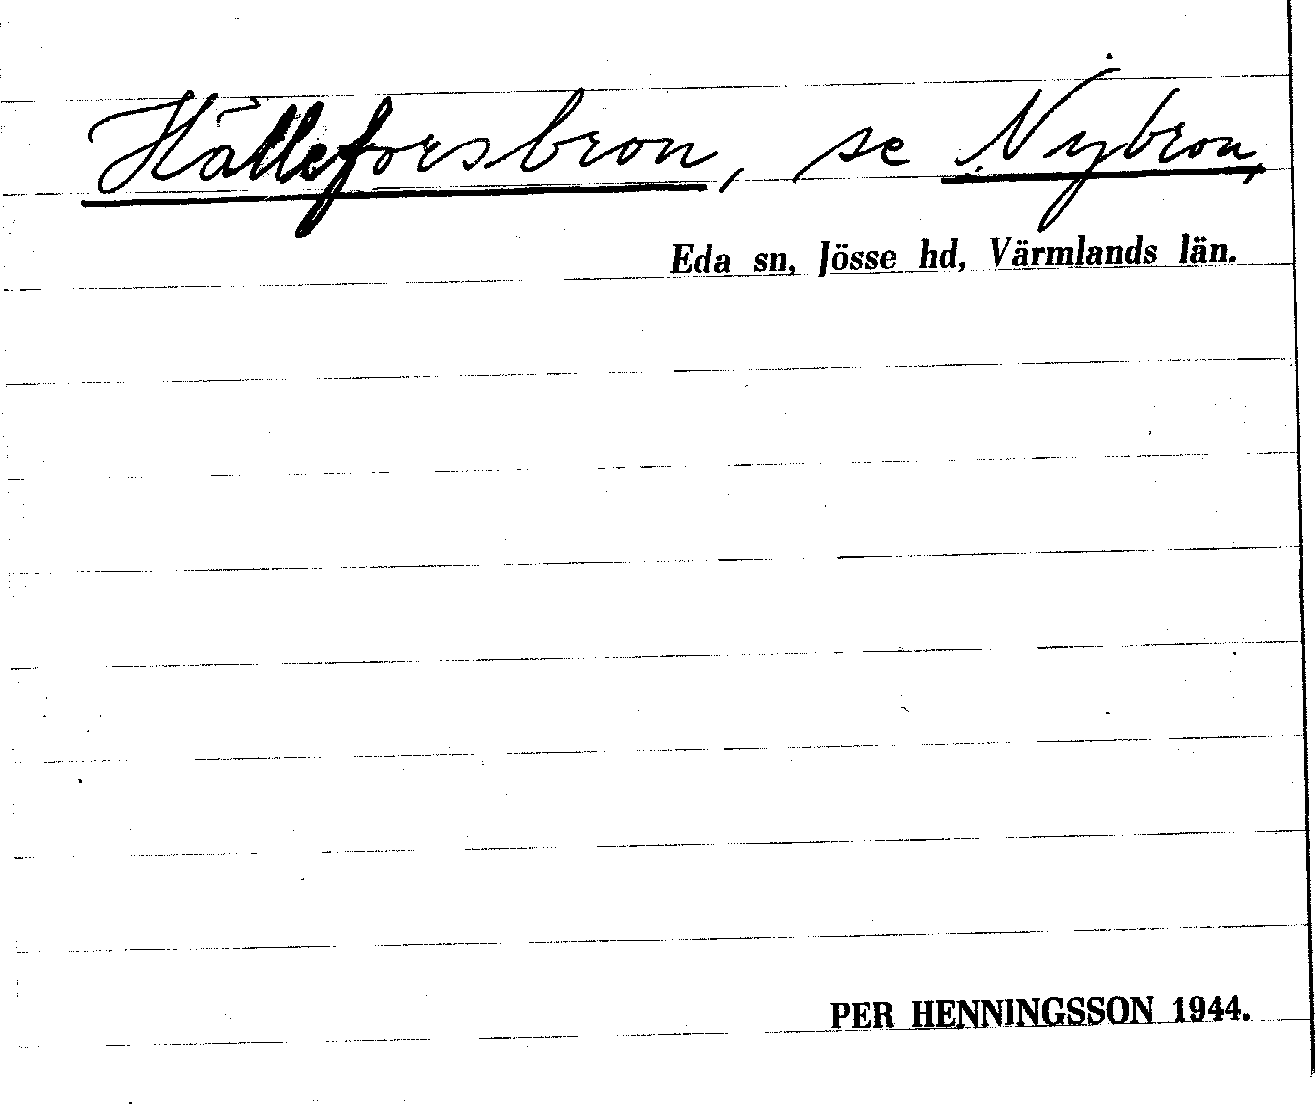 Hälleforsbron, se Nybron,
Eda sn, Jösse hd, Värmlands län.
PER HENNINGSSON 1944.